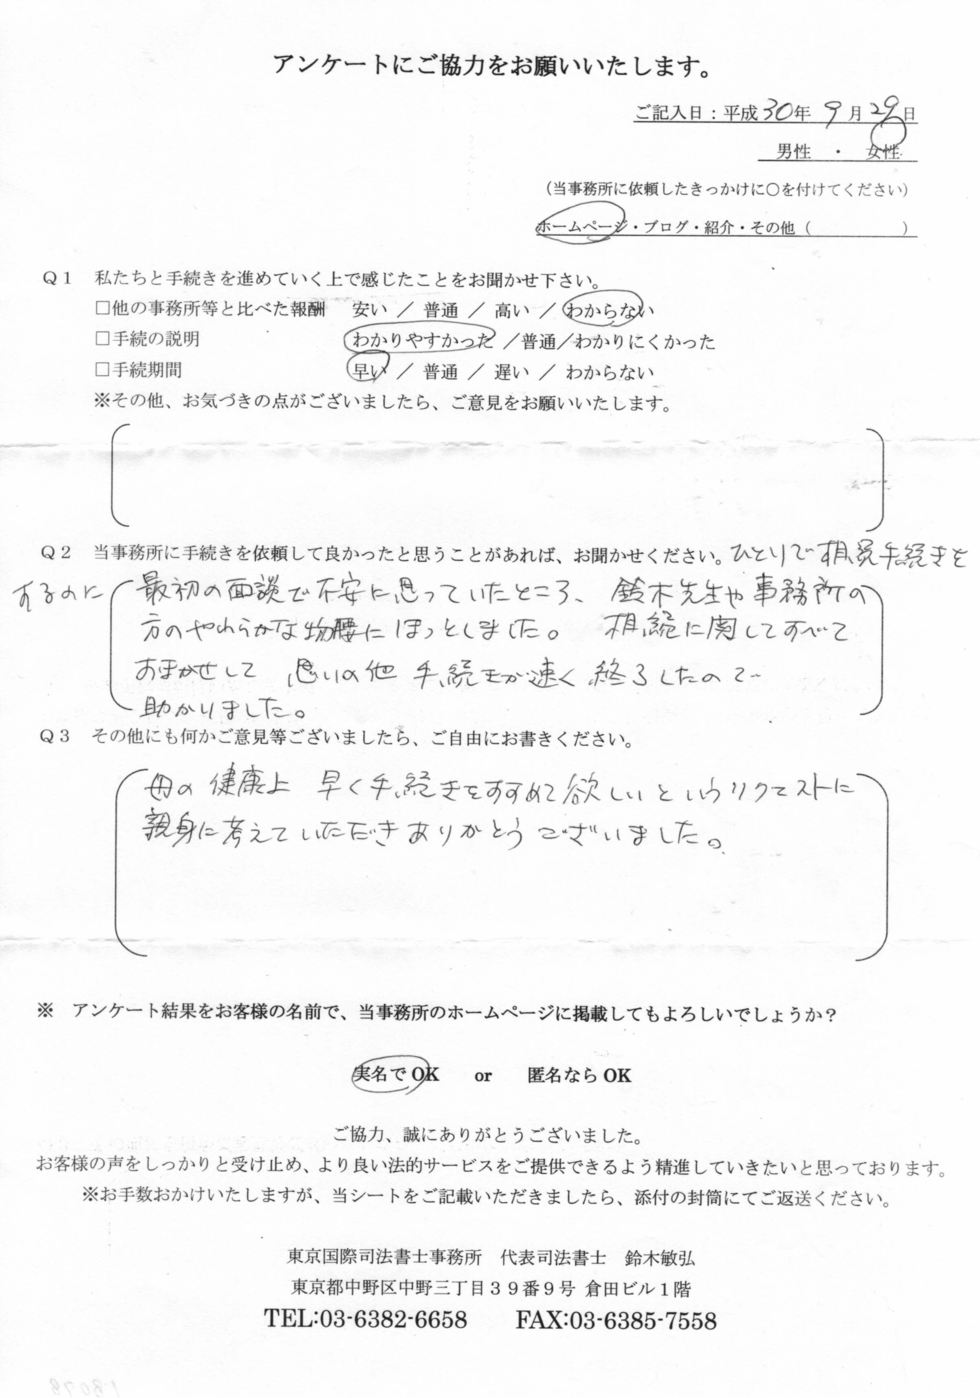 アンケートにご協力をお願いいたします。
ご記入日：平成30年 9月29日
男性 ・ 女性
（当事務所に依頼したきっかけに○を付けてください）
ホームページ・ブログ・紹介・その他（　　　　　）
Q１ 私たちと手続きを進めていく上で感じたことをお聞かせ下さい。
□他の事務所等と比べた報酬 安い ／ 普通 ／ 高い ／ わからない
□手続の説明 わかりやすかった ／普通／わかりにくかった
□手続期間 早い ／ 普通 ／ 遅い ／ わからない
※その他、お気づきの点がございましたら、ご意見をお願いいたします。
Q２ 当事務所に手続きを依頼して良かったと思うことがあれば、お聞かせください。ひとりで相続手続きを
するのに 最初の面談で不安に思っていたところ、鈴木先生や事務所の
方のやわらかな物腰にほっとしました。 相続に関してすべて
おまかせして 思いの他 手続きが速く終了したので
助かりました。
Q３ その他にも何かご意見等ございましたら、ご自由にお書きください。
母の健康上 早く手続きをすすめて欲しいというリクエストに
親身に考えていただきありがとうございました。
※ アンケート結果をお客様の名前で、当事務所のホームページに掲載してもよろしいでしょうか？
実名でOK or 匿名ならOK
ご協力、誠にありがとうございました。
お客様の声をしっかりと受け止め、より良い法的サービスをご提供できるよう精進していきたいと思っております。
※お手数おかけいたしますが、当シートをご記載いただきましたら、添付の封筒にてご返送ください。
東京国際司法書士事務所 代表司法書士 鈴木敏弘
東京都中野区中野三丁目３９番９号 倉田ビル１階
TEL:03-6382-6658 FAX:03-6385-7558